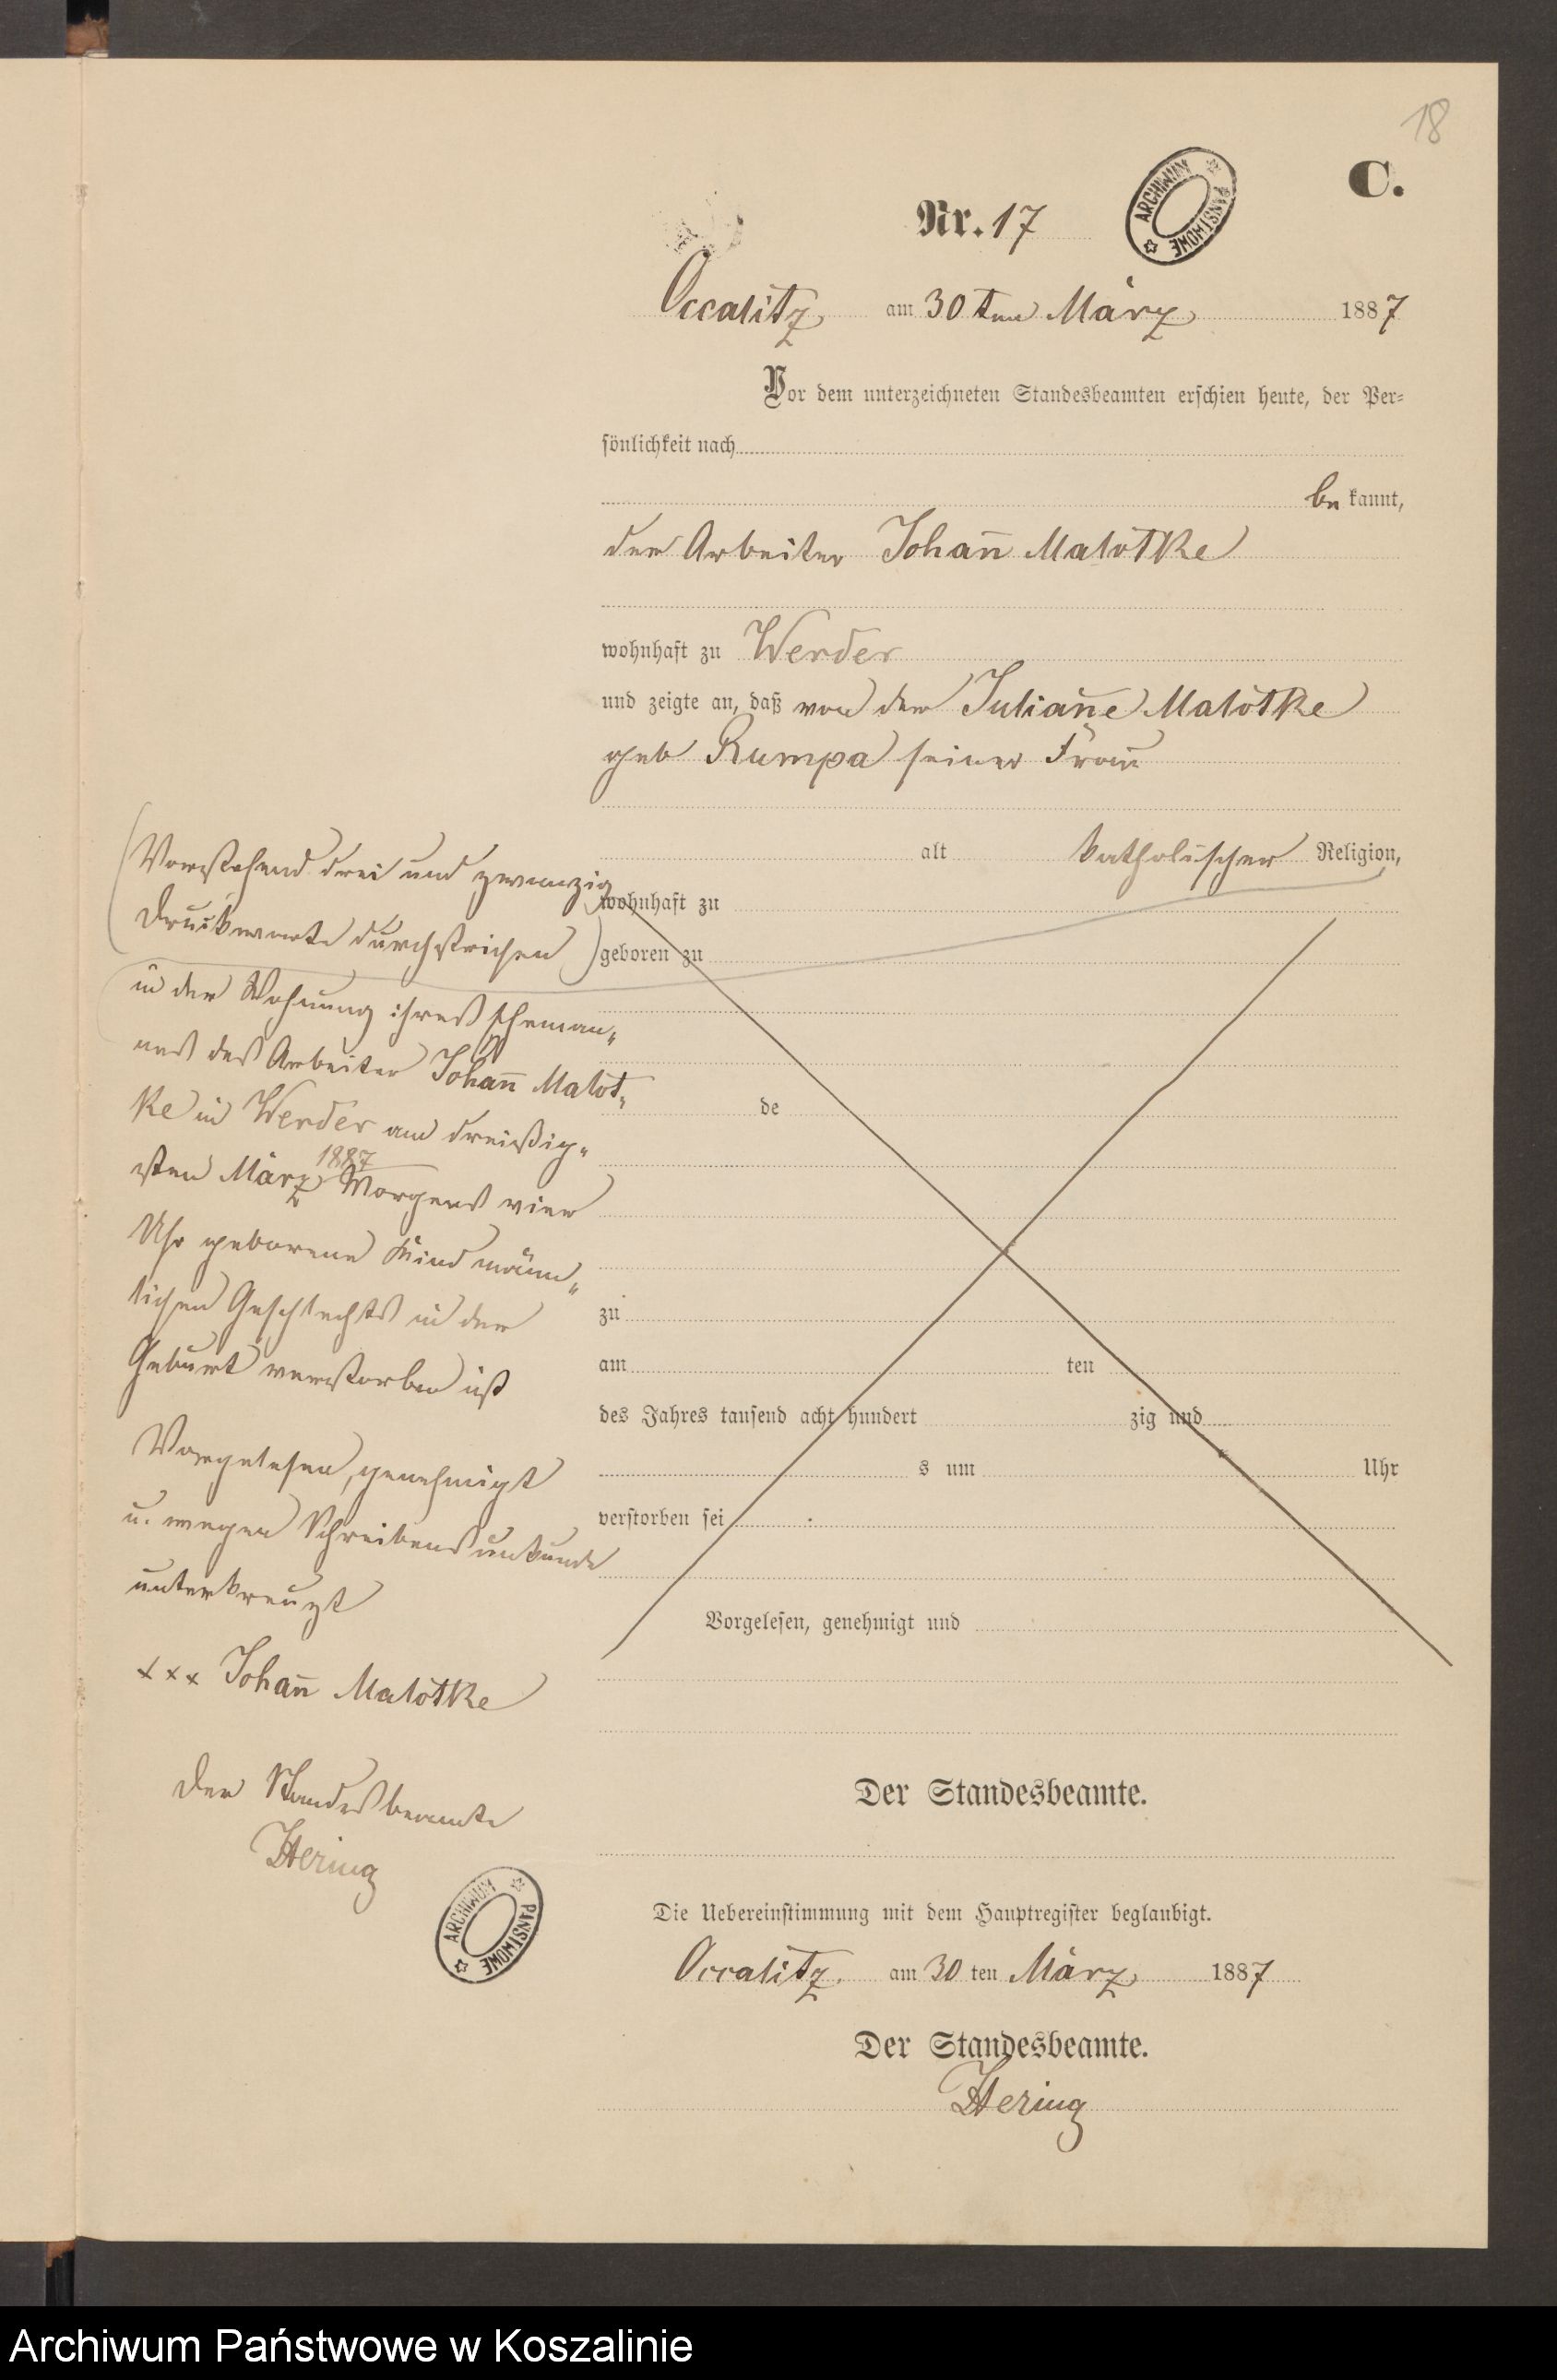 18
C.
Nr. 17
ARCHIWUM PAŃSTWOWE
Occalitz am 30ten März 1887
Vor dem unterzeichneten Standesbeamten erschien heute, der Per=
sönlichkeit nach
be kannt,
der Arbeiter Johan̄ Malotke
wohnhaft zu Werder
und zeigte an, daß von der Julian̄e Malotke
geb Rumpa seiner Frau
alt katholischer Religion,
wohnhaft zu
geboren zu
de
zu
am ten
des Jahres tausend acht hundert zig und
s um Uhr
verstorben sei
Vorgelesen, genehmigt und
(Vorstehend drei und zwanzig
Druckworte durchstrichen)
in der Wohnung ihres Eheman„
nes des Arbeiter Johan̄ Malot„
ke in Werder am dreißig„
sten März 1887 Morgens vier
Uhr geborene Kind männ„
lichen Geschlechts in der
Geburt verstorben ist
Vorgelesen, genehmigt
u. wegen Schreibensunkunde
unterkreuzt
xxx Johan̄ Malotke
Der Standesbeamte
Hering
ARCHIWUM PAŃSTWOWE
Der Standesbeamte.
Die Uebereinstimmung mit dem Hauptregister beglaubigt.
Occalitz. am 30 ten März 1887
Der Standesbeamte.
Hering
Archiwum Państwowe w Koszalinie